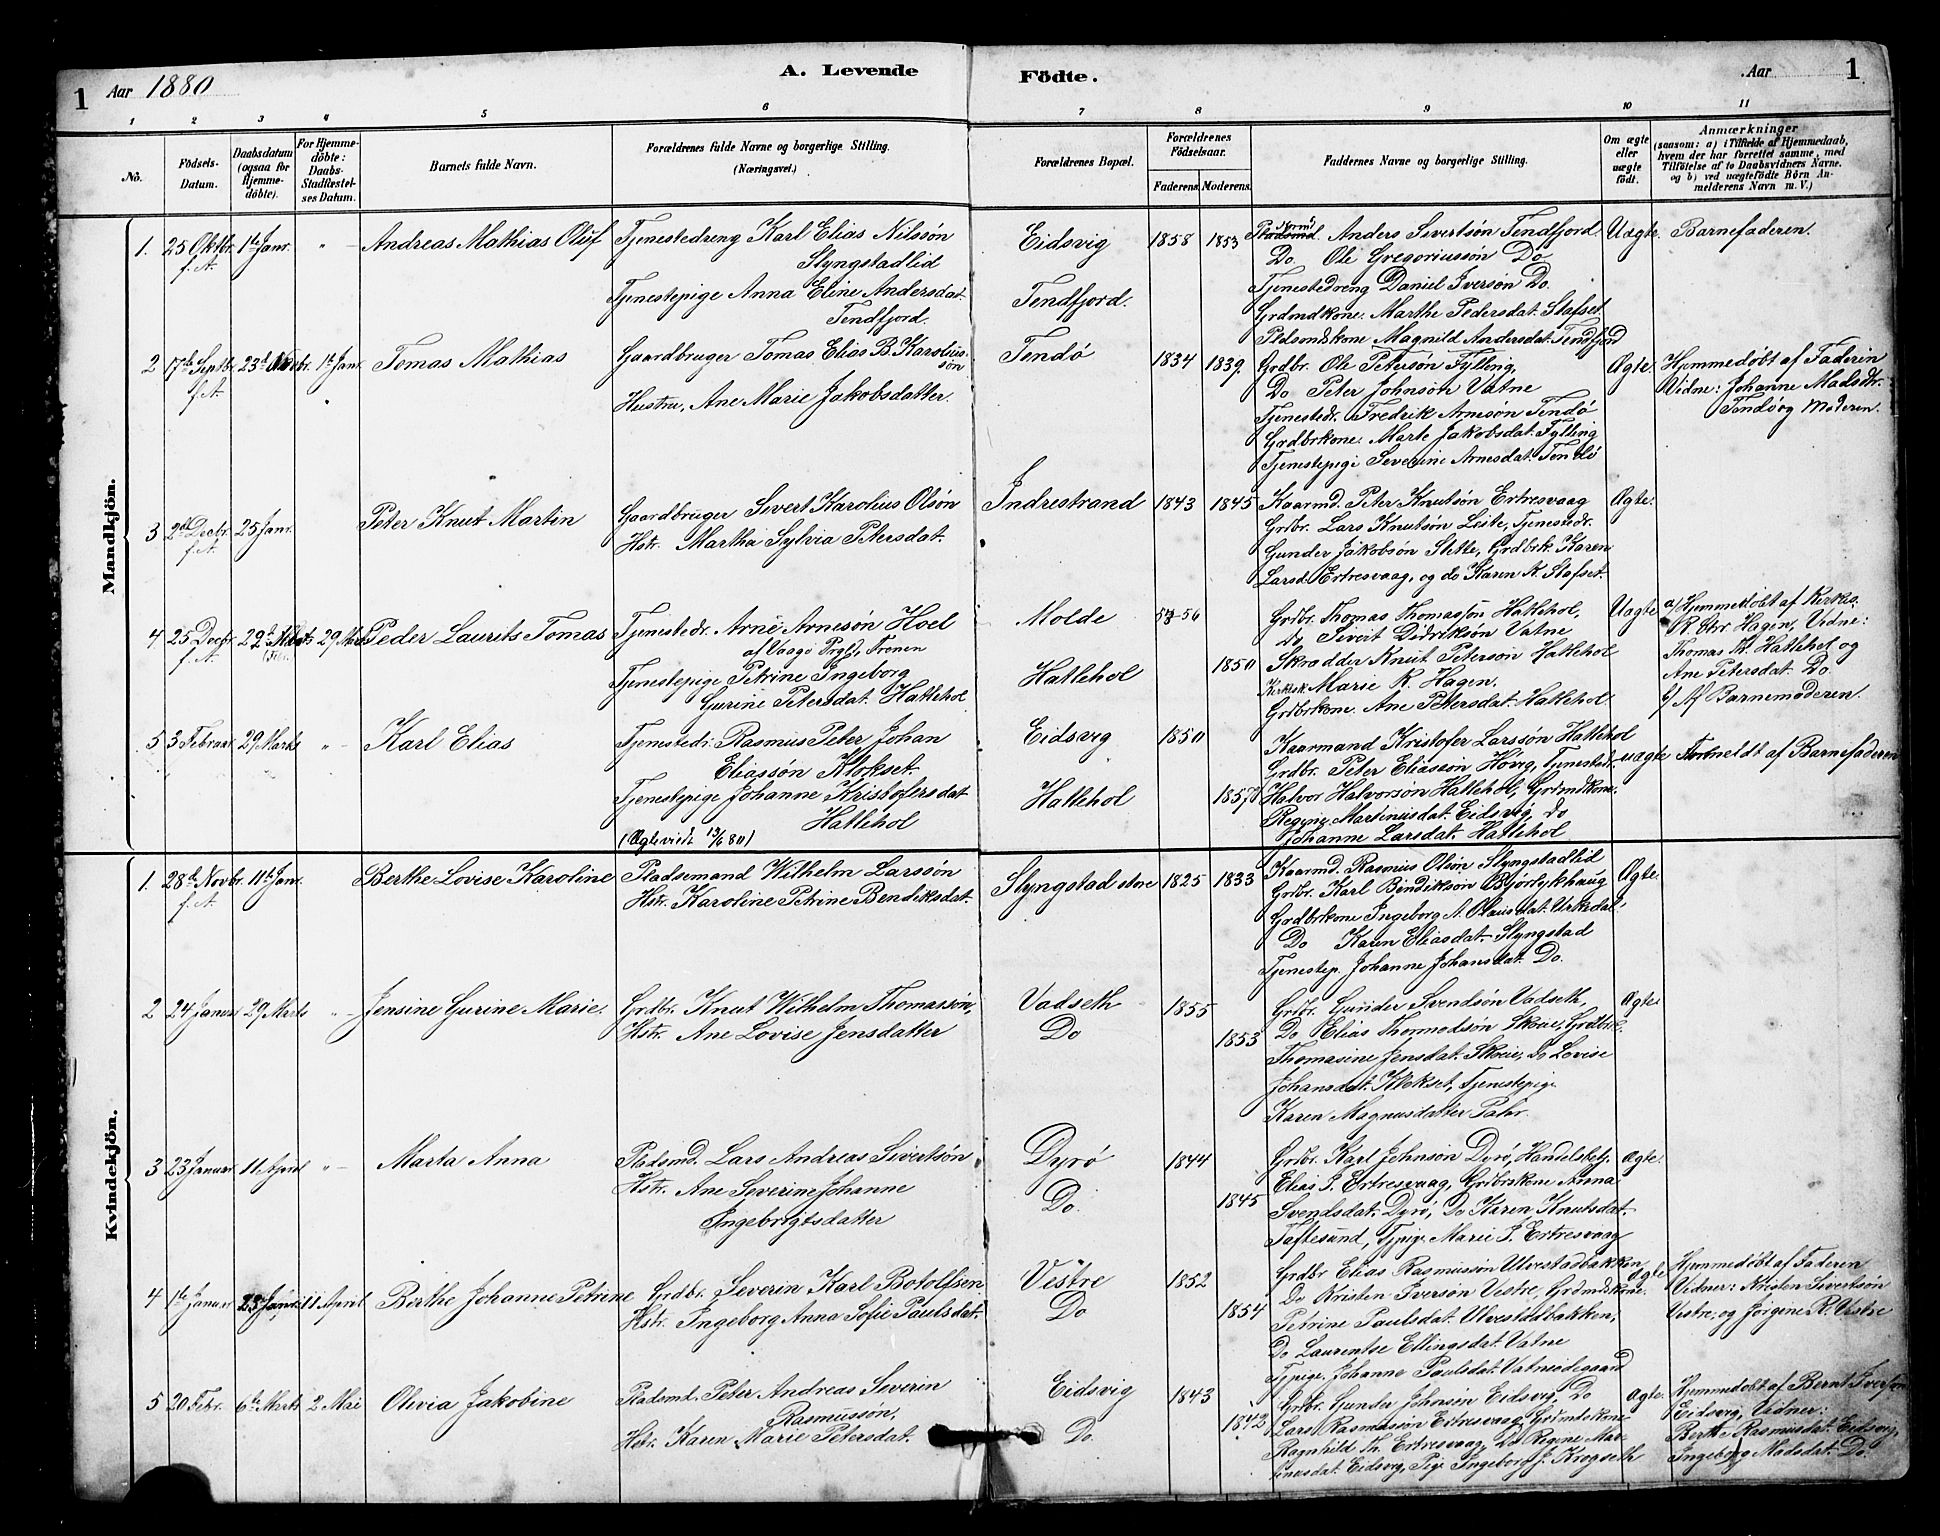 1 Aar 1880 A. Levende Födte. Aar 1
1 2 3 4 5 6 7 8 9 10 11
No. Födsels-Datum. Daabsdatum (ogsaa for Hjemmedöbte). For Hjemmedöbte: Daabs-Stadfæstelses Datum. Barnets fulde Navn. Forældrenes fulde Navne og borgerlige Stilling. (Næringsvei.) Forældrenes Bopæl. Forældrenes Födselsaar. Faderens. Moderens. Faddernes Navne og borgerlige Stilling. Om ægte eller uægte födt. Anmærkninger (saasom: a) i Tilfælde af Hjemmedaab, hvem der har forrettet samme, med Tilföielse af to Daabsvidners Navne. og b) ved uægtefödte Börn Anmelderens Navn m. V.)
Mandkjön.
1. 25 Oktbr. f.A. 1ste Janr. " Andreas Mathias Oluf
Tjenestedreng Karl Elias Nilssön
Slyngstadlid
Tjenestepige Anna Eline Andersdat.
Tendfjord.
Eidsvig
Tendfjord.
1858 1853
Anders Sivertsön Tendfjord.
Do. Ole Gregoriussön Do
Tjenestedreng Daniel Iversön Do.
Grdmdkone. Marthe Pedersdat. Stafset
Pldsmdskone Magnild Andersdat. Tendfjord
Uægte. Barnefaderen.
2 17de Septbr. f.A. 23de Novbr. 1ste Janr. Tomas Mathias
Gaardbruger Tomas Elias B. Karolussön
Hustru, Ane Marie Jakobsdatter.
Tendö
1834 1839.
Grdbr. Ole Petersön Fylling,
Do Peter Johnsön Vatne
Tjenestedr. Fredrik Arnesön Tendö
Grdbrkone. Marte Jakobsdat. Fylling
Tjenestepige Severine Arnesdat. Tendö
Ægte.
Hjemmedöbt af Faderen
Vidne: Johanne Madsdtr.
Tendö og Moderen.
3 2den Decbr. f.A. 25 Janr. Peter Knut Martin
Gaardbruger Sivert Karolius Olsön
Hstr. Martha Sylvia Petersdat.
Indrestrand
1843 1845
Kaarmd. Peter Knutsön Ertresvaag
Grdbr. Lars Knutsön Leite, Tjenestedr.
Gunder Jakobsön Slette, Grdbrk. Karen
Larsd. Ertresvaag, og do Karen K. Stafset.
Ægte.
4 25 Decbr. f.A. 29 Marts Peder Laurits Tomas
Tjenestedr. Arne Arnesön Hoel
af Vaagö Prgld, Fronen
Tjenestepige Petrine Ingeborg
Gurine Petersdat. Hatlehol
Molde
Hatlehol
56 1850
Grdbr. Thomas Thomassön Hatlehol,
do Siveit Didriksön Vatne
Skrædder Knut Petersön Hatlehol
Kirkesk. Marie K. Hagen.
Grdbrkone. Ane Petersdat. Hatlehol
Uægte
a/ Hjemmedöbt af Kirkes.
K. Arr Hagen, Vidne:
Thomas K. Hatlehol og
Ane Petersdat. Do.
b/ Af Barnemoderen.
5 3 Februar. 29 Marts " Karl Elias
Tjenestedr. Rasmus Peter Johan
Eliassön Klokset.
Tjenestepige Johanne Kristofersdat
Hatlehol
(Ægteviet 13/6 80)
Eidsvig
Hatlehol
1850
1857
Kaarmand Kristofer Larssön Hatlehol
Grdbr. Peter Eliassön Hövig, Tjenestedr.
Halvor Halvorsön Hatlehol, Grdmdkone.
Regine Martinusdat. Eidsvig, Do
Johanne Larsdat. Hatlehol
uægte Formeldt af Barnefaderen
Kvindekjön.
1. 28de Novbr. f.A. 11te Janr. Berthe Lovise Karoline
Pladsemand Wilhelm Larssön
Hstr. Karoline Petrine Bendiksdat.
Slyngstad stne
1825 1833
Kaarmd. Rasmus Olsön Slyngstadlid
Grdbr. Karl Bendiksön Bjorlykhaug
Grdbrkone Ingeborg A. Olausdat. Urkedal,
Do Karen Eliasdat. Slyngstad
Tjenestep. Johanne Johansdat. Do.
Ægte.
2 24 Januar 29 Marts " Jensine Gurine Marie.
Grdbr. Knut Wilhelm Thomassön,
Hstr. Ane Lovise Jensdatter
Vadseth
Do
1855
1853
Grbr. Gunder Svendsön Vadseth,
Do Elias Thormodsön Skeie, Grdbrk.
Thomasine Jensdat. Skeie, Do Lovise
Johansdat. Klokset, Tjenestepige
Karen Magnusdatter
Ægte
3 23 Januar. 11 April " Marta Anna
Pladsmd. Lars Andreas Sivertsön
Hstr. Ane Severine Johanne
Ingebrigtsdatter
Dyrö
Do.
1844
1845
Grbr. Karl Johnsön Dyrö, Handelsbetj.
Elias J. Ertresvaag, Grdbrskone Anna
Svendsdat. Dyrö, Do Karen Knutsdat.
Taftesund, Tjpige Marie J. Ertresvaag
Ægte.
4 1ste Januar 25 Janr. 11 April Berthe Johanne Petrine
Grdbr. Severin Karl Botolfsen
Hstr. Ingeborg Anna Sofie Paulsdat.
Vestre
Do
1852
1854
Grdbr Elias Rasmussön Ulvestadbakken
Do Kristen Iversön Vestre, Grdmdskone.
Petrine Paulsdat. Ulvestadbakken,
Do Laurentse Ellingsdat. Vatne
Tjpige, Johanne Paulsdat. Vatnsödegaard
Ægte
Hjemmedöbt af Faderen
Vidner: Kristen Sivertsön
Vestre, og Jörgine R. Vestre
5 20 Febr. 6te Marts 2 Mai Olivia Jakobine
Pladsmd. Peter Andreas Severin
Rasmussön,
Hstr. Karen Marie Petersdat.
Eidsvig
Do.
1843
1842
Grbr. Gunder Johnsön Eidsvig, Do
Lars Rasmussön Ertresvaag, Grdmdskone
Ragnhild Th. Ertresvaag, Do Regine Martinusdat. Eidsvig, Pige Ingeborg J. Kropseth
Ægte.
Hjemmedöbt af Bernt Iversön
Eidsvig, Vidner:
Berthe Rasmusdat. Eidsvig,
Ingeborg Madsdat. Do